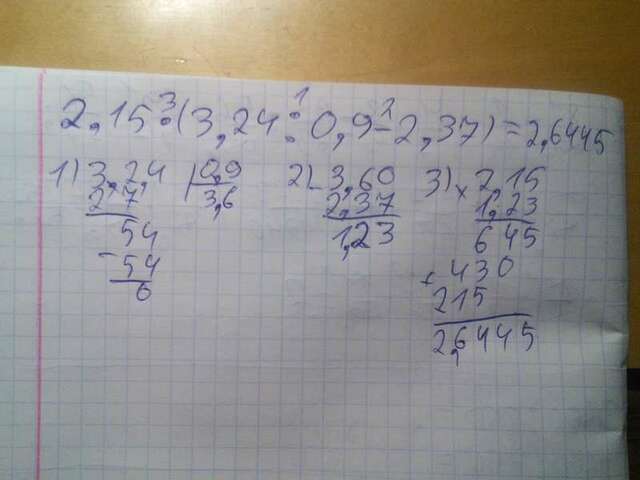 2,15 : (3,24 : 0,9 - 2,37) = 2,6445
3 1 1
1) 3,2,4 | 0,9
2 7 3,6
54
- 54
6
2) - 3,60
2,37
1,23
3) x 2,15
1,23
645
+ 430
215
2,6445